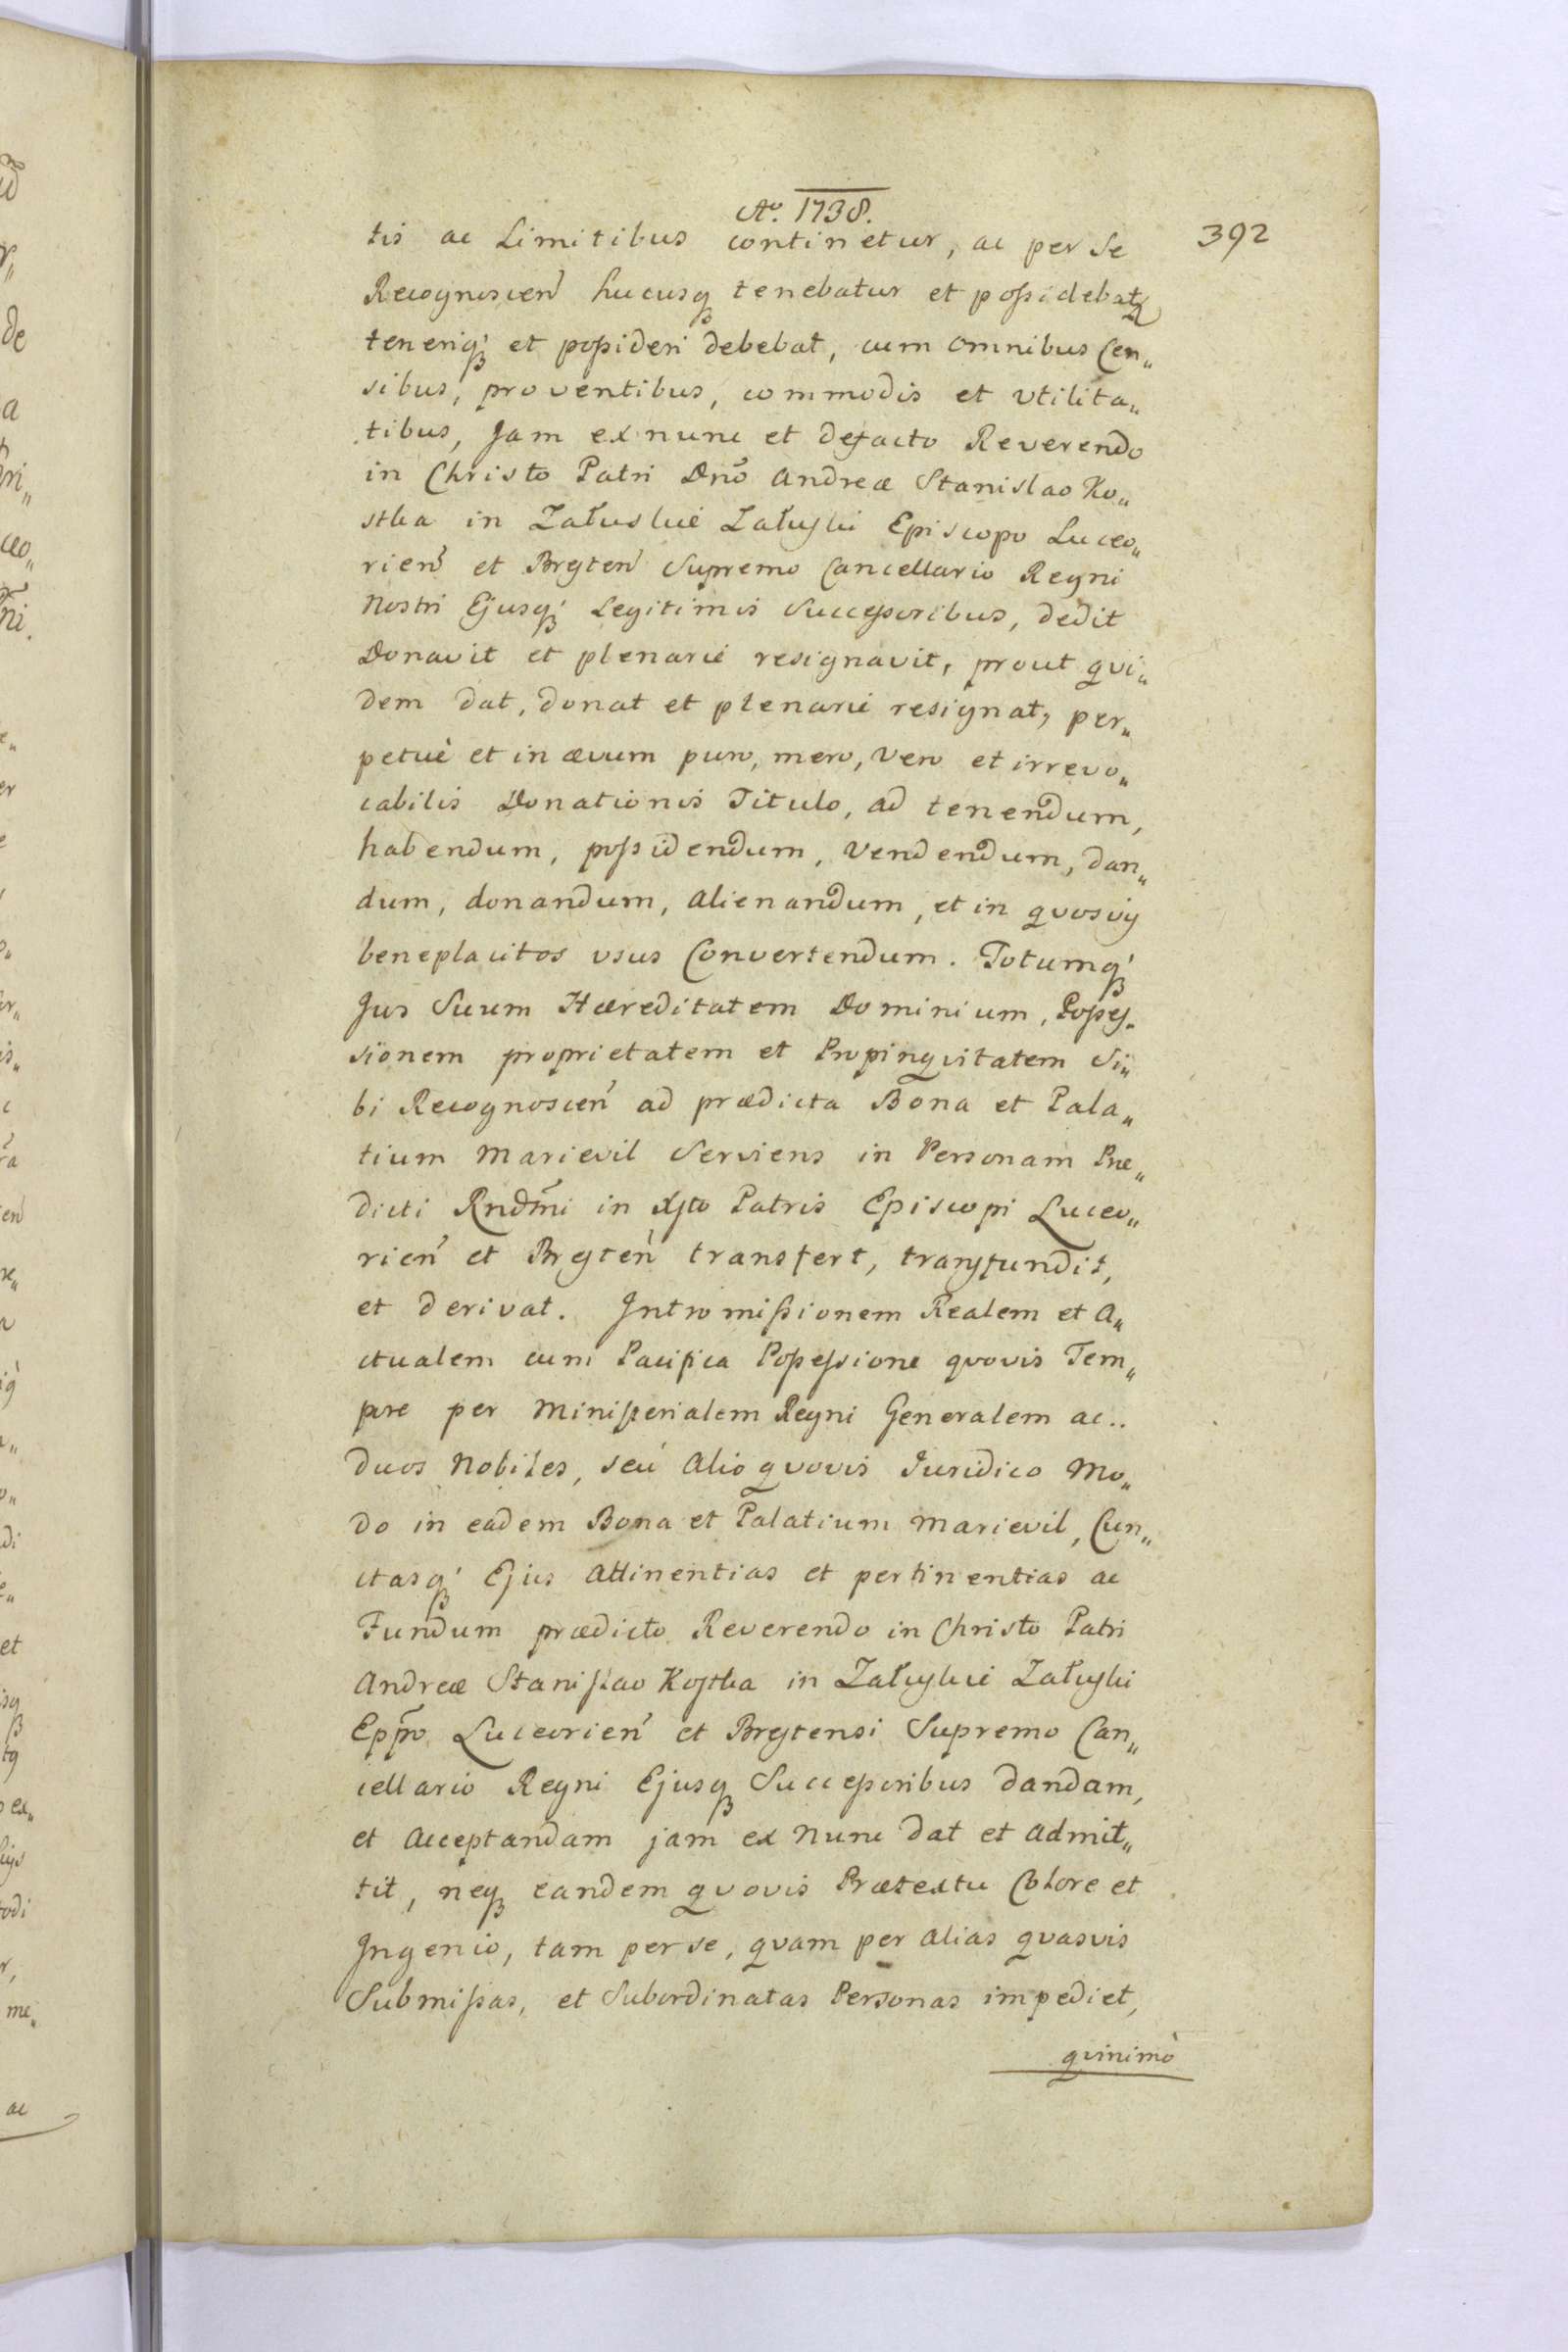 Aº. 1738.
392
tis ac Limitibus continetur, ac per Se
Recognoscen̄ hucusq; tenebatur et possidebatr
teneriq́; et possideri debebat, cum omnibus Cen„
sibus, proventibus, commodis et utilita„
tibus, Jam ex nunc et defacto Reverendo
in Christo Patri Dn̄o Andreæ Stanislao Ko„
stka in Załuskie Załuski Episcopo Luceo„
rien̄ et Bresten̄ Supremo Cancellario Regni
Nostri Ejusq́; Legitimis Successoribus, dedit
Donavit et plenarie resignavit, prout qvi„
dem dat, donat et plenarie resignat, per„
petuè et in ævum puro, mero, vero et irrevo„
cabilis Donationis Titulo, ad tenendum,
habendum, possidendum, vendendum, dan„
dum, donandum, alienandum, et in qvosvis
beneplacitos usus Convertendum. Totumq́;
Jus Suum Hæreditatem Dominium, Posses„
sionem proprietatem et Propinqvitatem Si„
bi Recognoscen̄ ad prædicta Bona et Pala„
tium Marievil Serviens in Personam Præ„
dicti Rndm̄i in Xsto Patris Episcopi Luceo„
rien̄ et Bresten̄ transfert, transfundit,
et derivat. Intromissionem Realem et A„
ctualem cum Pacifica Possessione qvovis Tem„
pore per Ministerialem Regni Generalem ac..
duos Nobiles, seu Alio qvovis Juridico Mo„
do in eadem Bona et Palatium Marievil, Cun„
ctasq́; Ejus Attinentias et pertinentias ac
Fundum prædicto Reverendo in Christo Patri
Andreæ Stanislao Kostka in Załuskie Załuski
Epp̄o Luceorien̄ et Brestensi Supremo Can„
cellario Regni Ejusq; Successoribus dandam,
et Acceptandam jam ex nunc dat et Admit„
tit, neq; eandem qvovis Prætextu Colore et
Ingenio, tam per se, qvam per alias qvasvis
Submissas, et Subordinatas Personas impediet,
qvinimò